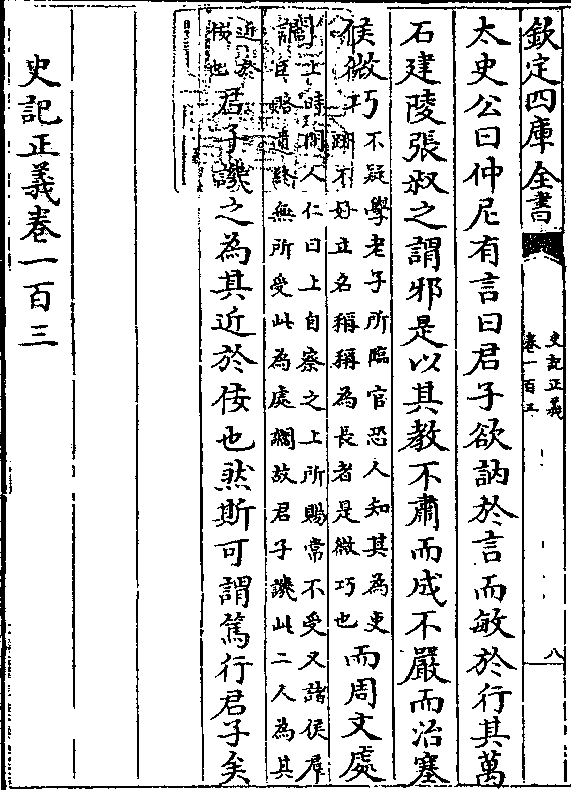 欽定四庫全書
史記正義
卷一百三
八
太史公曰仲尼有言曰君子欲訥於言而敏於行其萬
石建陵張叔之謂邪是以其教不肅而成不嚴而治塞
侯微巧
不疑學老子所臨官恐人知其為吏
跡不好立名稱稱為長者是微巧也
而周文處
讇
上時問人仁曰上自察之上所賜常不受又諸侯羣
臣賂遺終無所受此為處讇故君子譏此二人為其
近
也
君子譏之為其近於佞也然斯可謂篤行君子矣
史記正義卷一百三